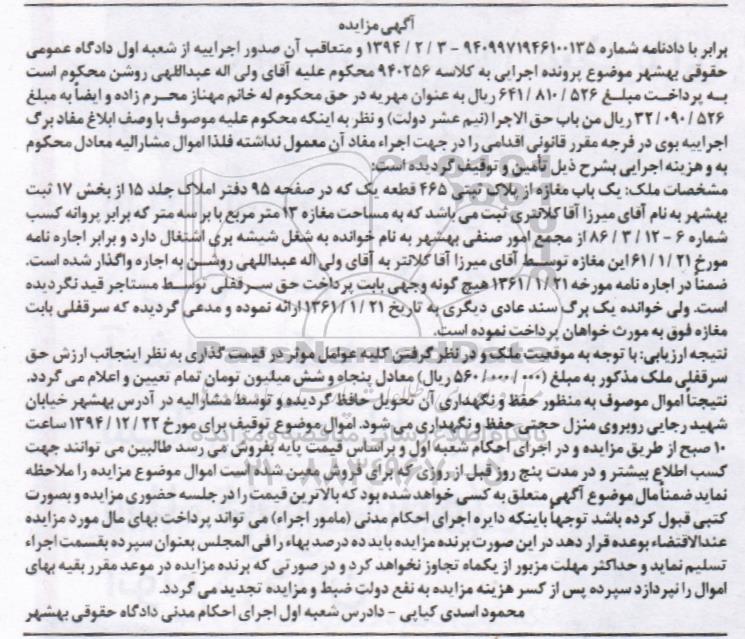 آگهی مزایده
برابر با دادنامه شماره 9409971946100135 - 3 / 2 / 1394 و متعاقب آن صدور اجراییه از شعبه اول دادگاه عمومی
حقوقی بهشهر موضوع پرونده اجرایی به کلاسه 940256 محکوم علیه آقای ولی اله عبداللهی روشن محکوم است
به پرداخت مبلغ 526 / 810 / 641 ریال به عنوان مهریه در حق محکوم له خانم مهناز محرم زاده و ایضاً به مبلغ
526 / 090 / 32 ریال من باب حق الاجرا (نیم عشر دولت) و نظر به اینکه محکوم علیه موصوف با وصف ابلاغ مفاد برگ
اجراییه بوی در فرجه مقرر قانونی اقدامی را در جهت اجراء مفاد آن معمول نداشته فلذا اموال مشارالیه معادل محکوم
به و هزینه اجرایی بشرح ذیل تأمین و توقیف گردیده است:
مشخصات ملک: یک باب مغازه از پلاک ثبتی 465 قطعه یک که در صفحه 95 دفتر املاک جلد 15 از بخش 17 ثبت
بهشهر به نام آقای میرزا آقا کلانتری ثبت می باشد که به مساحت مغازه 13 متر مربع با بر سه متر که برابر پروانه کسب
شماره 6 - 12 / 3 / 86 از مجمع امور صنفی بهشهر به نام خوانده به شغل شیشه بری اشتغال دارد و برابر اجاره نامه
مورخ 21 / 1 / 61 این مغازه توسط آقای میرزا آقا کلانتر به آقای ولی اله عبداللهی روشن به اجاره واگذار شده است.
ضمناً در اجاره نامه مورخه 21 / 1 / 1361 هیچ گونه وجهی بابت پرداخت حق سرقفلی توسط مستاجر قید نگردیده
است. ولی خوانده یک برگ سند عادی دیگری به تاریخ 21 / 1 / 1361 ارائه نموده و مدعی گردیده که سرقفلی بابت
مغازه فوق به مورث خواهان پرداخت نموده است.
نتیجه ارزیابی: با توجه به موقعیت ملک و در نظر گرفتن کلیه عوامل موثر در قیمت گذاری به نظر اینجانب ارزش حق
سرقفلی ملک مذکور به مبلغ (000 / 000 / 560 ریال) معادل پنجاه و شش میلیون تومان تمام تعیین و اعلام می گردد.
نتیجتاً اموال موصوف به منظور حفظ و نگهداری آن تحویل حافظ گردیده و توسط مشارالیه در آدرس بهشهر خیابان
شهید رجایی روبروی منزل حجتی حفظ و نگهداری می شود. اموال موضوع توقیف برای مورخ 22 / 12 / 1394 ساعت
10 صبح از طریق مزایده و در اجرای احکام شعبه اول و براساس قیمت پایه بفروش می رسد طالبین می توانند جهت
کسب اطلاع بیشتر و در مدت پنج روز قبل از روزی که برای فروش معین شده است اموال موضوع مزایده را ملاحظه
نماید ضمناً مال موضوع آگهی متعلق به کسی خواهد شده بود که بالاترین قیمت را در جلسه حضوری مزایده و بصورت
کتبی قبول کرده باشد توجهاً باینکه دایره اجرای احکام مدنی (مامور اجراء) می تواند پرداخت بهای مال مورد مزایده
عندالاقتضاء بوعده قرار دهد در این صورت برنده مزایده باید ده درصد بهاء را فی المجلس بعنوان سپرده بقسمت اجراء
تسلیم نماید و حداکثر مهلت مزبور از یکماه تجاوز نخواهد کرد و در صورتی که برنده مزایده در موعد مقرر بقیه بهای
اموال را نپردازد سپرده پس از کسر هزینه مزایده به نفع دولت ضبط و مزایده تجدید می گردد.
محمود اسدی کیاپی - دادرس شعبه اول اجرای احکام مدنی دادگاه حقوقی بهشهر